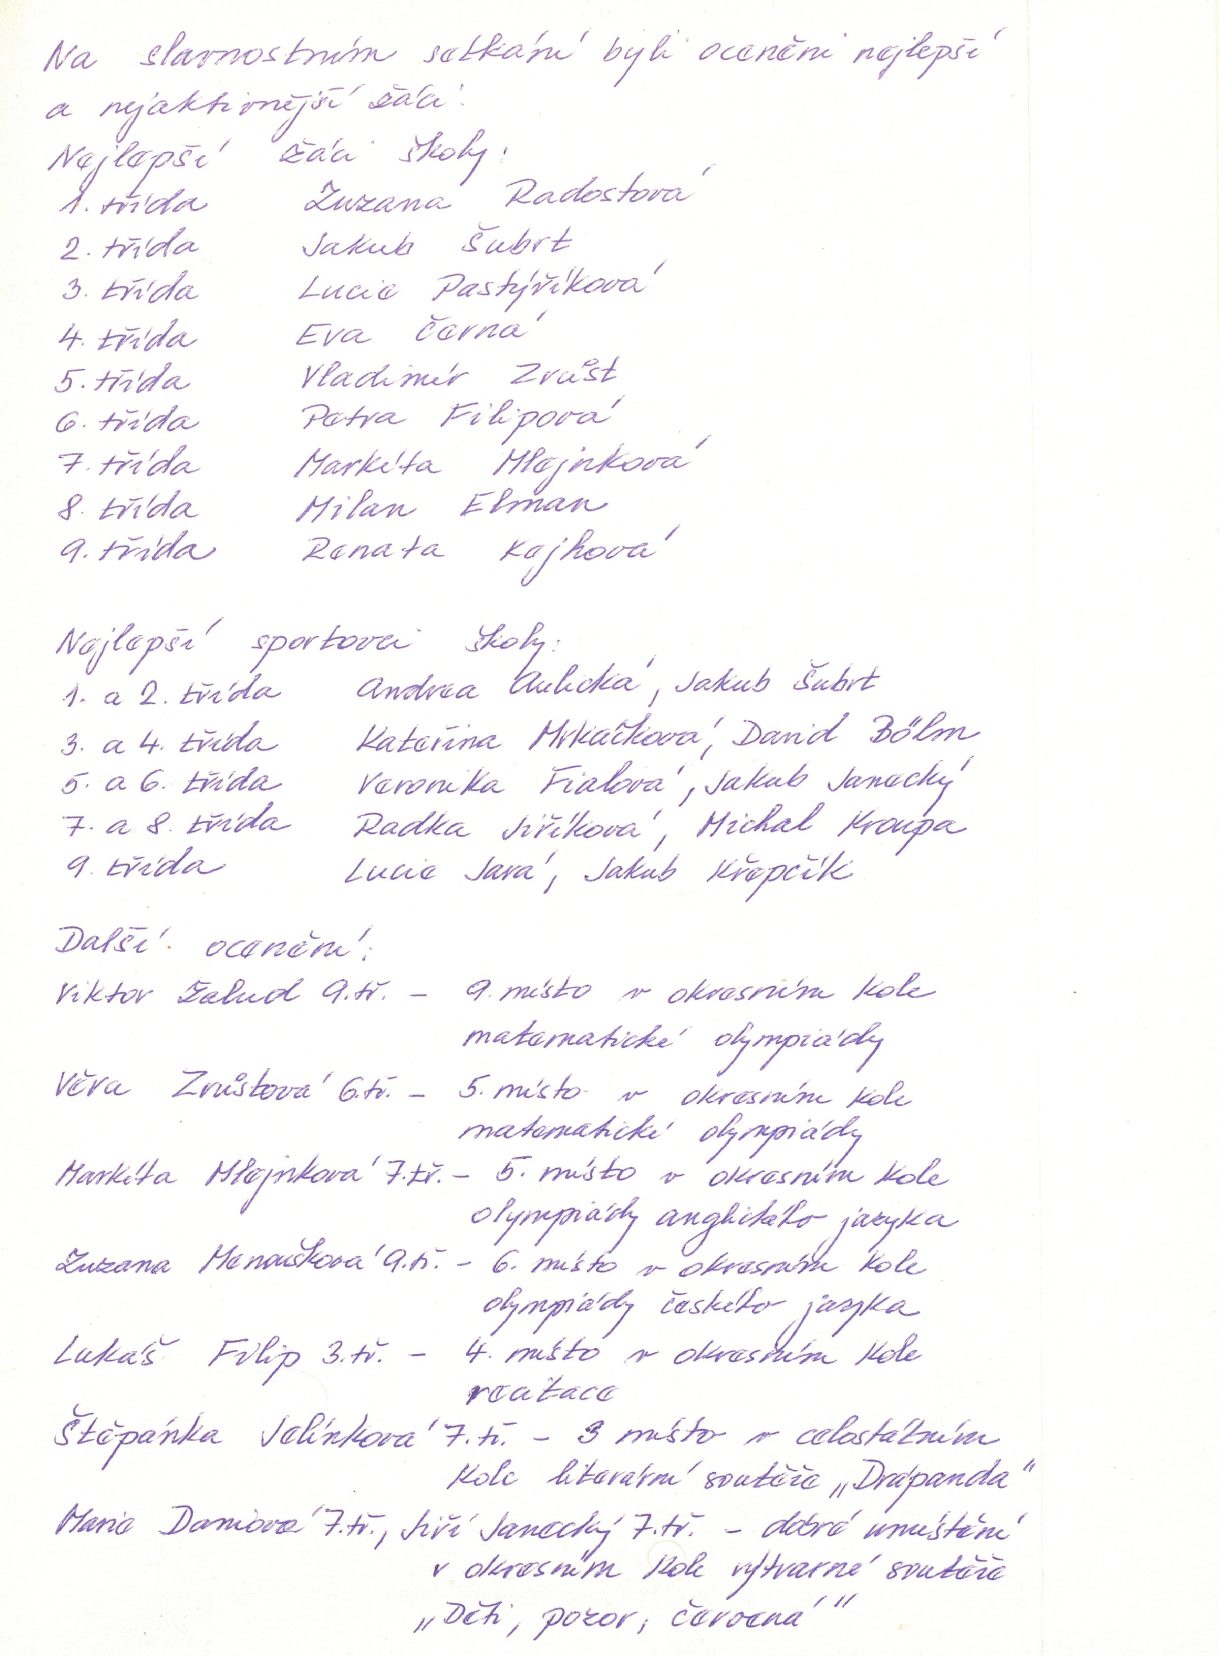 Na slavnostním setkání byli oceněni nejlepší
a nejaktivnější žáci:
Nejlepší žáci školy:
1. třída Zuzana Radostová
2. třída Jakub Šubrt
3. třída Lucie Pastýříková
4. třída Eva Černá
5. třída Vladimír Zrůst
6. třída Petra Filipová
7. třída Markéta Mlejnková
8. třída Milan Elman
9. třída Renata Kejhová
Nejlepší sportovci školy:
1. a 2. třída Andrea Aulická, Jakub Šubrt
3. a 4. třída Kateřina Mrkáčková, David Bölm
5. a 6. třída Veronika Fialová, Jakub Janecký
7. a 8. třída Radka Jiříková, Michal Kroupa
9. třída Lucie Jará, Jakub Křepčík
Další ocenění:
Viktor Žalud 9.tř. – 9. místo v okresním kole
matematické olympiády
Věra Zrůstová 6.tř. – 5. místo v okresním kole
matematické olympiády
Markéta Mlejnková 7.tř. – 5. místo v okresním kole
olympiády anglického jazyka
Zuzana 9.tř. – 6. místo v okresním kole
olympiády českého jazyka
Lukáš Filip 3.tř. – 4. místo v okresním kole
recitace
Štěpánka Jelínková 7.tř. – 3 místo v celostátním
kole literární soutěže „Drápanda"
Marie 7.tř., Jiří Janecký 7.tř. – dobré umístění
v okresním kole výtvarné soutěže
„Děti, pozor, červená"